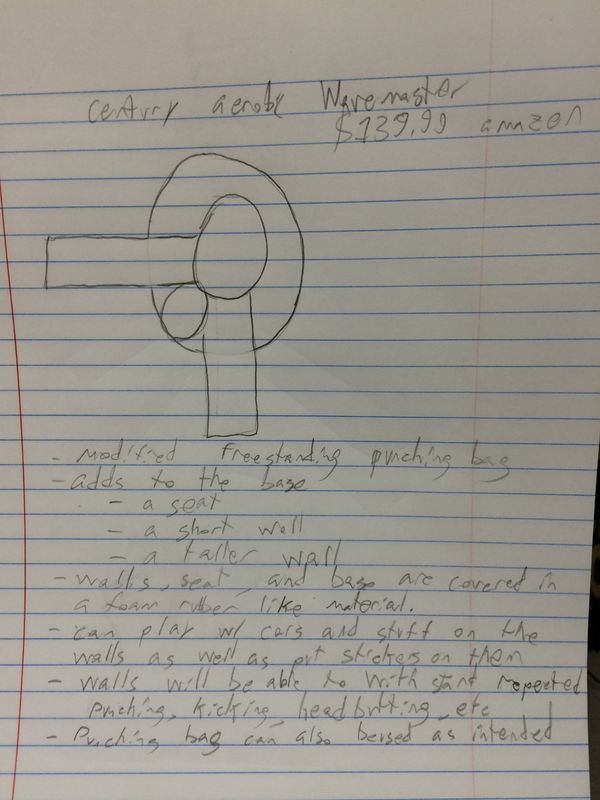 Century aerobic Wavemaster
$139.99 amazon
- Modified freestanding punching bag
- adds to the base
- a seat
- a short wall
- a taller wall
- walls, seat, and base are covered in
a foam rubber like material.
- can play w/ cars and stuff on the
walls as well as put stickers on them
- walls will be able to withstand repeated
punching, kicking, headbutting, etc
- Punching bag can also be used as intended